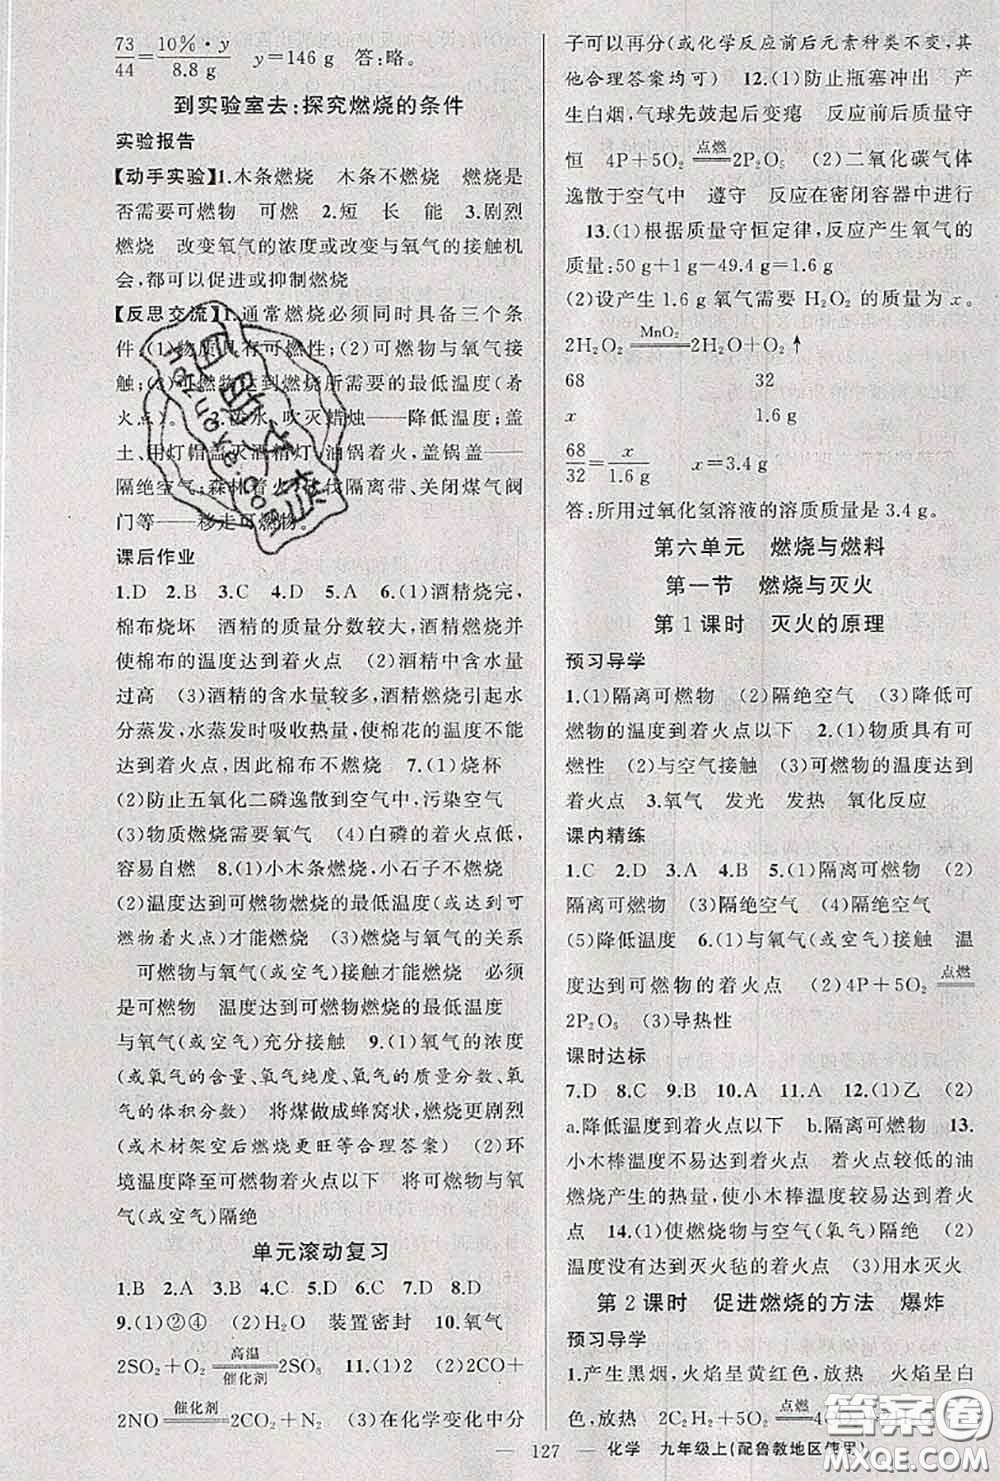 73/44=10%·y/8.8 g　y=146 g　答:略。
到实验室去:探究燃烧的条件
实验报告
【动手实验】1.木条燃烧　木条不燃烧　燃烧是
否需要可燃物　可燃　2.短　长　能　3.剧烈
燃烧　改变氧气的浓度或改变与氧气的接触机
会,都可以促进或抑制燃烧
【反思交流】1.通常燃烧必须同时具备三个条
件:(1)物质具有可燃性;(2)可燃物与氧气接
触;(3)可燃物达到燃烧所需要的最低温度(着
火点)。2.泼水、吹灭蜡烛——降低温度;盖
土、用灯帽盖灭酒精灯、油锅着火,盖锅盖——
隔绝空气;森林着火,砍伐隔离带、关闭煤气阀
门等——移走可燃物。
课后作业
1.D　2.B　3.C　4.D　5.A　6.(1)酒精烧完,
棉布烧坏　酒精的质量分数较大,酒精燃烧并
使棉布的温度达到着火点　(2)酒精中含水量
过高　(3)酒精的含水量较多,酒精燃烧引起水
分蒸发,水蒸发时吸收热量,使棉花的温度不能
达到着火点,因此棉布不燃烧　7.(1)烧杯
(2)防止五氧化二磷逸散到空气中,污染空气
(3)物质燃烧需要氧气　(4)白磷的着火点低,
容易自燃　8.(1)小木条燃烧,小石子不燃烧
(2)温度达到可燃物燃烧的最低温度(或达到可
燃物着火点)才能燃烧　(3)燃烧与氧气的关系
可燃物与氧气(或空气)接触才能燃烧　必须
是可燃物　温度达到可燃物燃烧的最低温度
与氧气(或空气)充分接触　9.(1)氧气的浓度
(或氧气的含量、氧气纯度、氧气的质量分数、氧
气的体积分数)　将煤做成蜂窝状,燃烧更剧烈
(或木材架空后燃烧更旺等合理答案)　(2)环
境温度降至可燃物着火点以下　将可燃物与氧
气(或空气)隔绝
单元滚动复习
1.B　2.A　3.B　4.C　5.D　6.C　7.D　8.D
9.(1)①②④　(2)H₂O　装置密封　10.氧气
2SO₂+O₂ 高温 催化剂 2SO₃　11.(1)2　(2)2CO+
2NO 催化剂 2CO₂+N₂　(3)在化学变化中分
子可以再分(或化学反应前后元素种类不变,其
他合理答案均可)　12.(1)防止瓶塞冲出　产
生白烟,气球先鼓起后变瘪　反应前后质量守
恒　4P+5O₂ 点燃 2P₂O₅　(2)二氧化碳气体
逸散于空气中　遵守　反应在密闭容器中进行
13.(1)根据质量守恒定律,反应产生氧气的
质量:50 g+1 g-49.4 g=1.6 g
(2)设产生 1.6 g 氧气需要 H₂O₂ 的质量为 x。
2H₂O₂ MnO₂ 2H₂O+O₂↑
68　32
x　1.6 g
68/32=x/1.6 g　x=3.4 g
答:所用过氧化氢溶液的溶质质量是 3.4 g。
第六单元　燃烧与燃料
第一节　燃烧与灭火
第 1 课时　灭火的原理
预习导学
1.(1)隔离可燃物　(2)隔绝空气　(3)降低可
燃物的温度到着火点以下　2.(1)物质具有可
燃性　(2)与空气接触　(3)可燃物的温度达到
着火点　3.氧气　发光　发热　氧化反应
课内精练
1.C　2.D　3.D　4.A　5.(1)隔离可燃物　(2)
隔离可燃物　(3)隔绝空气　(4)隔绝空气
(5)降低温度　6.(1)与氧气(或空气)接触　温
度达到可燃物的着火点　(2)4P+5O₂ 点燃
2P₂O₅　(3)导热性
课时达标
7.D　8.C　9.B　10.A　11.A　12.(1)乙　(2)
a.降低温度到着火点以下　b.隔离可燃物　13.
小木棒温度不易达到着火点　着火点较低的油
燃烧产生的热量,使小木棒温度较易达到着火
点　14.(1)使燃烧物与空气(氧气)隔绝　(2)
降低温度到灭火毡的着火点以下　(3)用水灭火
第 2 课时　促进燃烧的方法　爆炸
预习导学
1.产生黑烟,火焰呈黄红色,放热　火焰呈白
色,放热　2C₂H₂+5O₂ 点燃
127　化学　九年级上(配鲁教地区使用)
答案圈